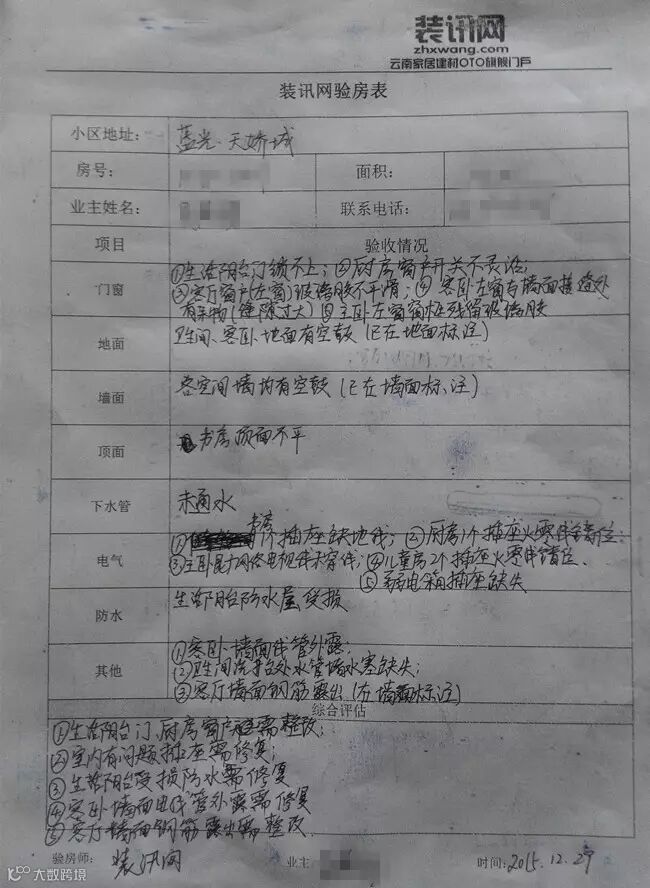 装讯网
zhxwang.com
云南家居建材OTO旗舰门户
装讯网验房表
小区地址: 蓝光·天娇城
房号: 面积:
业主姓名: 联系电话:
项目 验收情况
门窗 ①生活阳台门锁不上;②厨房窗户开关不灵活;
③客厅窗户(左窗)玻璃胶不平滑;④客卧左窗与墙面接缝处
有杂物(缝隙过大)⑤主卧左窗窗框残留玻璃胶
地面 卫生间、客卧地面有空鼓(已在地面标注)
墙面 各空间墙均有空鼓(已在墙面标注)
顶面 书房顶面不平
下水管 未通水
电气 ① 书房1个插座缺地线;②厨房1个插座火零线错位
③主卧 网络电视线未穿线;④儿童房2个插座火零线错位.
⑤弱电箱插座缺失
防水 生活阳台防水层受损
其他 ①客卧墙面线管外露;
②卫生间洗手台处水管堵水塞缺失;
③客厅墙面钢筋露出(在墙面标注)
综合评估
①生活阳台门、厨房窗户 需整改;
②室内有问题插座需修复;
③生活阳台受损防水需修复
④客卧墙面电线管外露需修复
⑤客厅墙面钢筋露出需整改.
验房师: 装讯网 业主: 时间: 2015.12.27
大数跨境